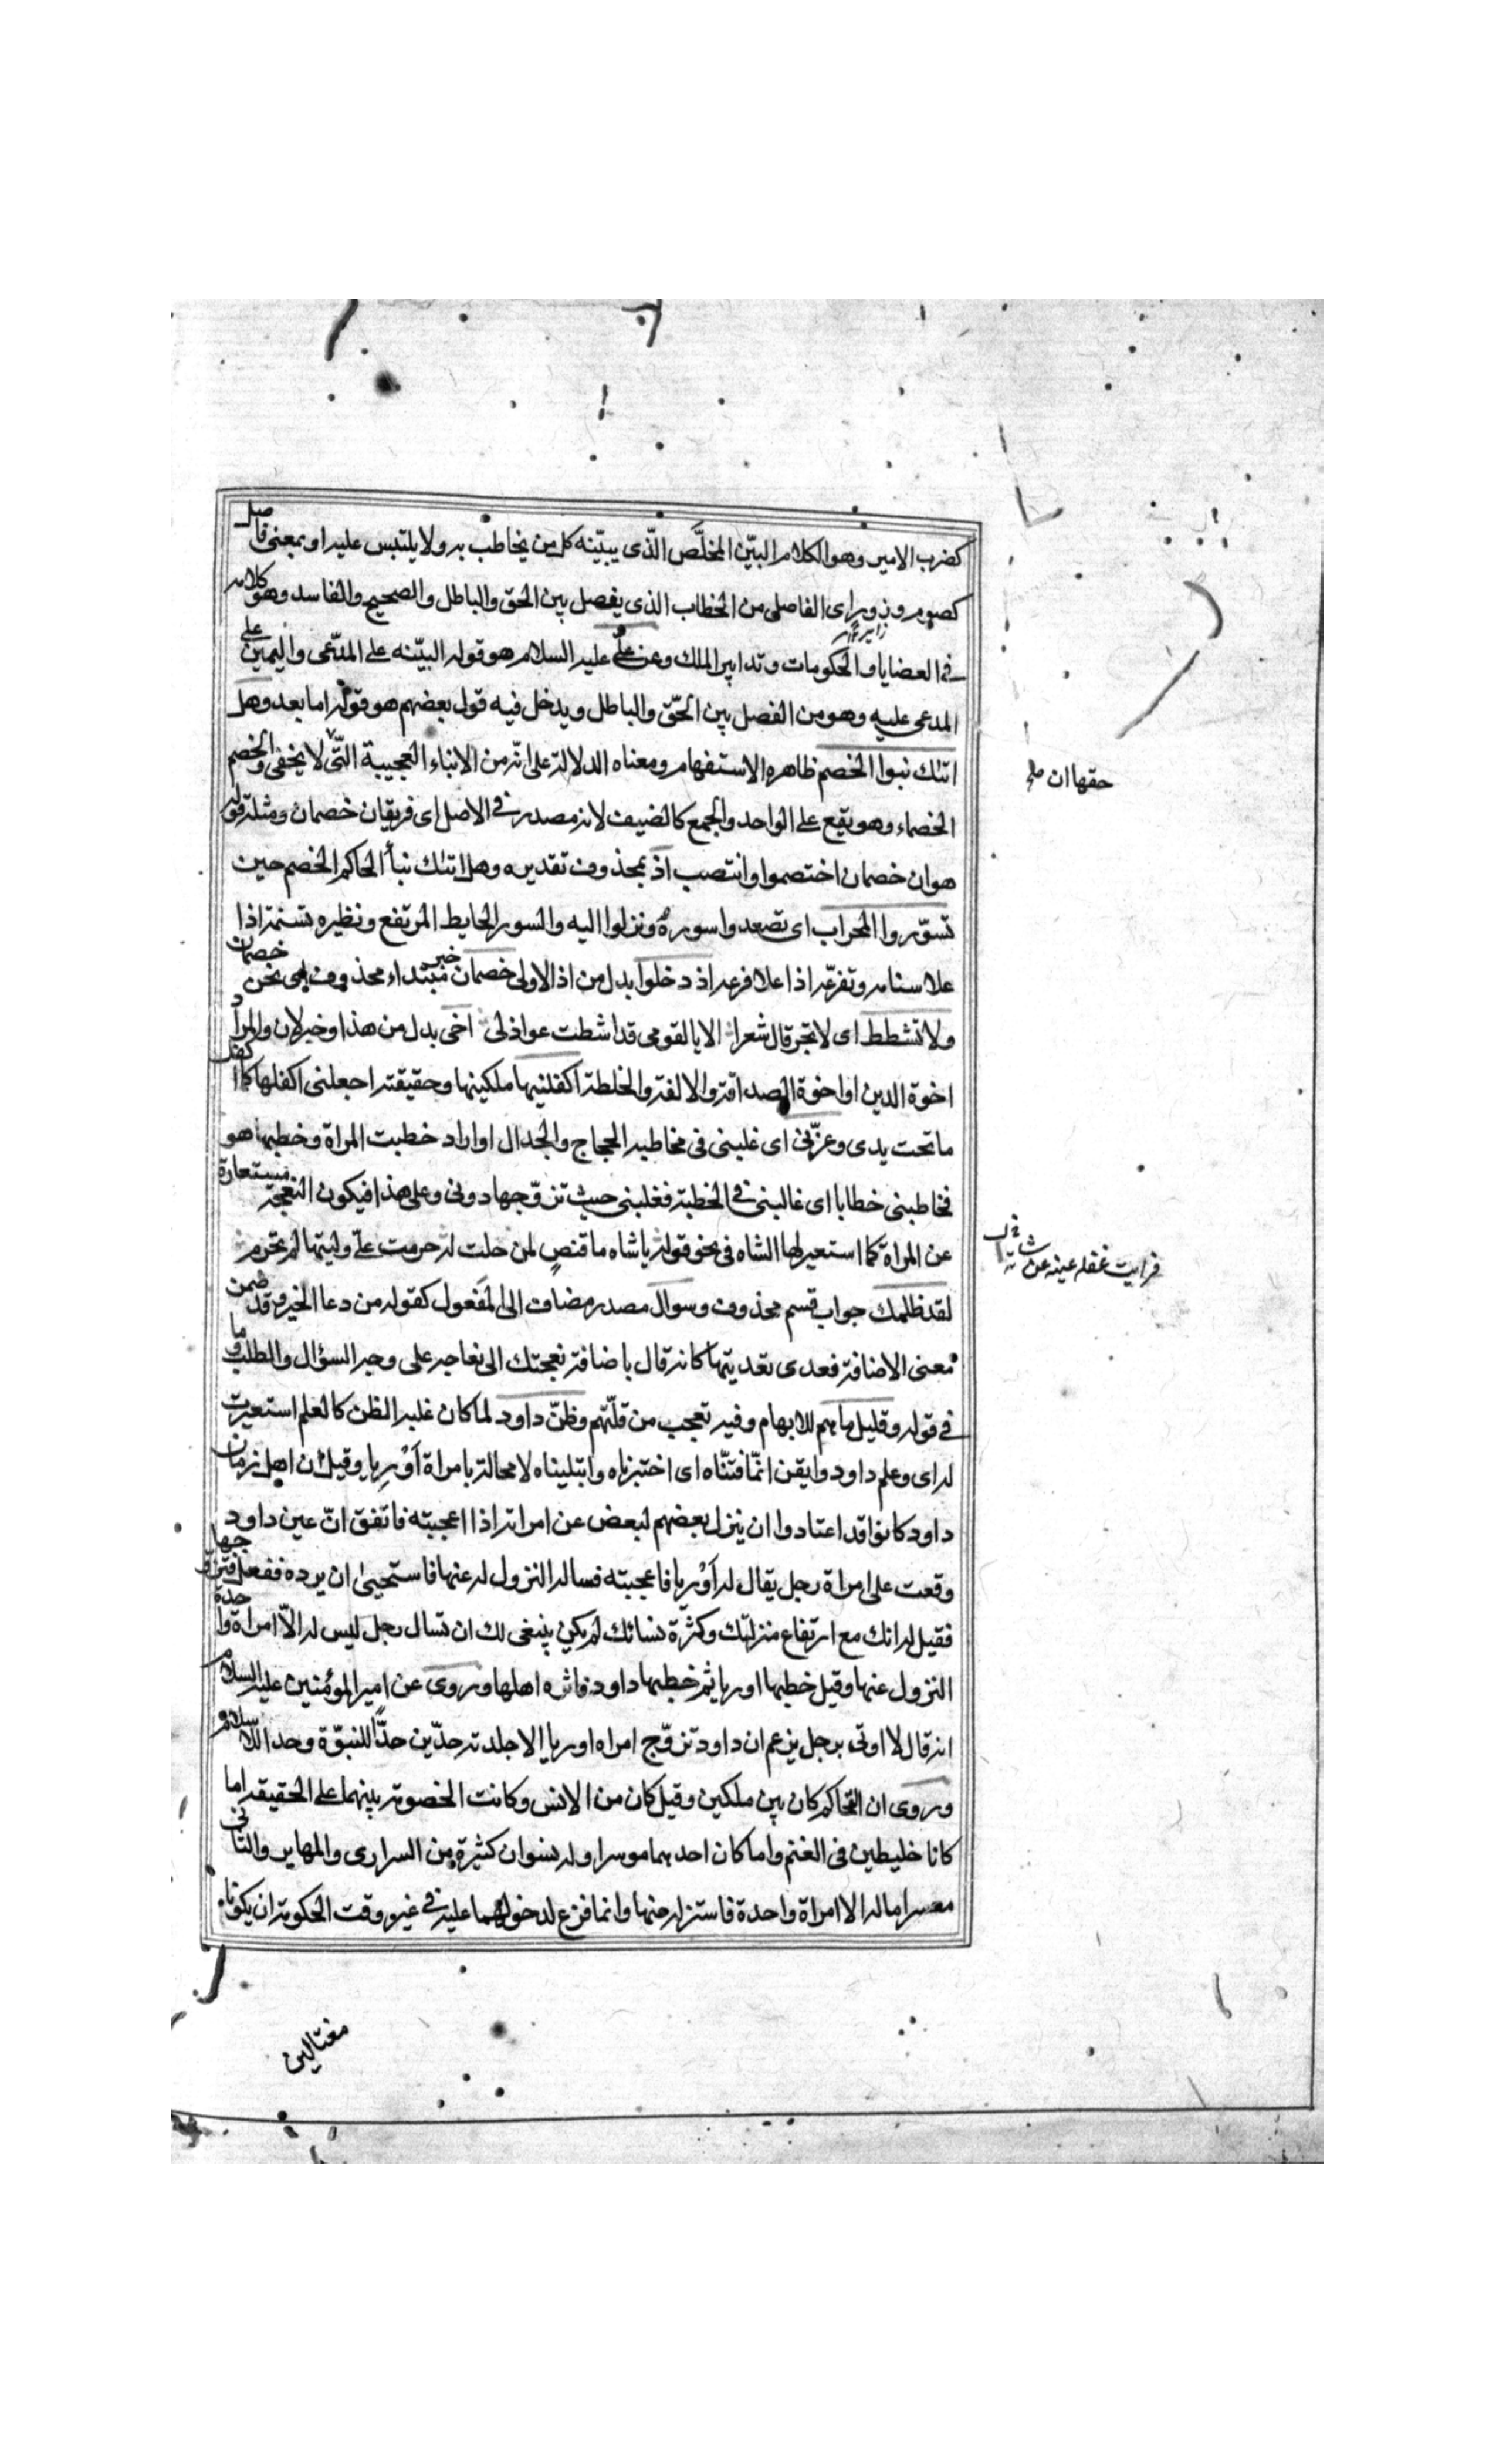 كضرب الامير وهو الكلام البيّن المخلَّص الّذى يبيّنه كل من يخاطب به ولا يلتبس عليه او بمعنى فاصل
كصوم وزور اى الفاصل من الخطاب الذى يفصل بين الحق والباطل والصحيح والفاسد وهو كلامه
فى القضايا والحكومات وتدابير الملك وعن علىّ عليه السلام هو قوله البيّنه على المدّعى واليمين على
المدعى عليه وهو من الفصل بين الحّق والباطل ويدخل فيه قول بعضهم هو قوله اما بعد وهل
اتيك نبوا الخصم ظاهره الاستفهام ومعناه الدلالة على انّه من الانباء العجيبة الّتى لا يخفى والخصم
الخصماء وهو يقع على الواحد والجمع كالضيف لانه مصدر فى الاصل اى فريقان خصمان ومثله قوله
هوان خصمان اختصموا وانتصب اذ بمحذوف تقديره وهل اتيك نبأ الحاكم الخصم حين
تسوّروا المحراب اى تصعدوا سوره ونزلوا اليه والسور الحايط المرتفع ونظيره تسنمه اذا
علا سنامه وتفرعّه اذا علا فرعه اذ دخلوا بدل من اذ الاولى خصمان خبر مبتداء محذوف اى نحن خصمان
ولا تشطط اى لا تجر قال شعرا الا يا لقومى قد اشطت عواذلى اخى بدل من هذا او خبر لان والمراد
اخوة الدين او اخوة الصداقة والالفة والخلطة اكفلنيها ملكينها وحقيقته اجعلنى اكفلها كما اكفل
ما تحت يدى وعزّنى اى غلبنى فى مخاطبه الحجاج والجدال او اراد خطبت المراة وخطبها هو
فخاطبنى خطابا اى غالبنى فى الخطبة فغلبنى حيث تزوّجها دونى وعلى هذا فيكون النعجة مستعارة
عن المراة كما استعير لها الشاه فى نحو قوله يا شاه ما قنصٍ لمن حلت له حرمت علىّ وليتها لم تحرم
لقد ظلمك جواب قسم محذوف وسوال مصدر مضاف الى المفعول كقوله من دعا الخير وقد ضمن
معنى الاضافة فعدى تعديتها كانه قال باضافة نعجتك الى نعاجه على وجه السؤال والطلب وما
فى قوله وقليل ما هم للابهام وفيه تعجب من قلّتهم وظنّ داود لما كان غلبه الظن كالعلم استعيرت
له اى وعلم داود وايقن انّما فتنّاه اى اختبرناه وابتليناه لا محالة بامراة اَوْرِيا وقيل ان اهل زمان
داود كانوا قد اعتادوا ان ينزل بعضهم لبعض عن امراته اذا اعجبته فاتفق انّ عين داود
وقعت على امراة رجل يقال له اَوْريا فاعجبته فساله النزول له عنها فاستحيىٰ ان يرده ففعل فتزوّجها
فقيل له انك مع ارتفاع منزلتك وكثرة نسائك لم يكن ينبغى لك ان تسال رجل ليس له الاّ امراة واحدة
النزول عنها وقيل خطبها اوريا ثم خطبها داود فاثره اهلها وروى عن امير المؤمنين عليه السلام
انه قال لا اوتى برجل يزعم ان داود تزوّج امراه اوريا الا جلدته حدّين حدًّا للنبوّة وحد الاسلام
وروى ان التحاكم كان بين ملكين وقيل كان من الانس وكانت الخصومة بينهما على الحقيقه اما
كانا خليطين فى الغنم واما كان احدهما موسرا وله نسوان كثيرة من السرارى والمهاير والثانى
معسرا ماله الا امراة واحدة فاستنزله عنها وانما فزع لدخولهما عليه فى غير وقت الحكومة ان يكونا
حقها ان صح
فرايت غفله عينه عن شاته
مغتالين